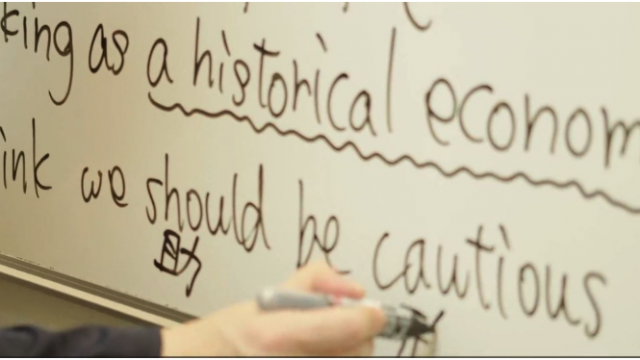 king as a historical econom
ink we should be cautious
助
形